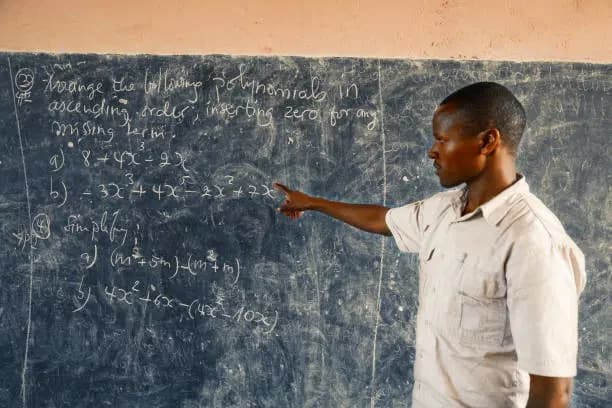 ③ Arrange the following polynomials in
ascending order, inserting zero for any
missing term.
a) 8 + 4x³ - 2x
b) - 3x³ + 4x⁵ - 2x² + 2x
④ Simplify
a) (m² + 5m) - (m² + m)
b) 4x² + 6x - (4x² - 10x)